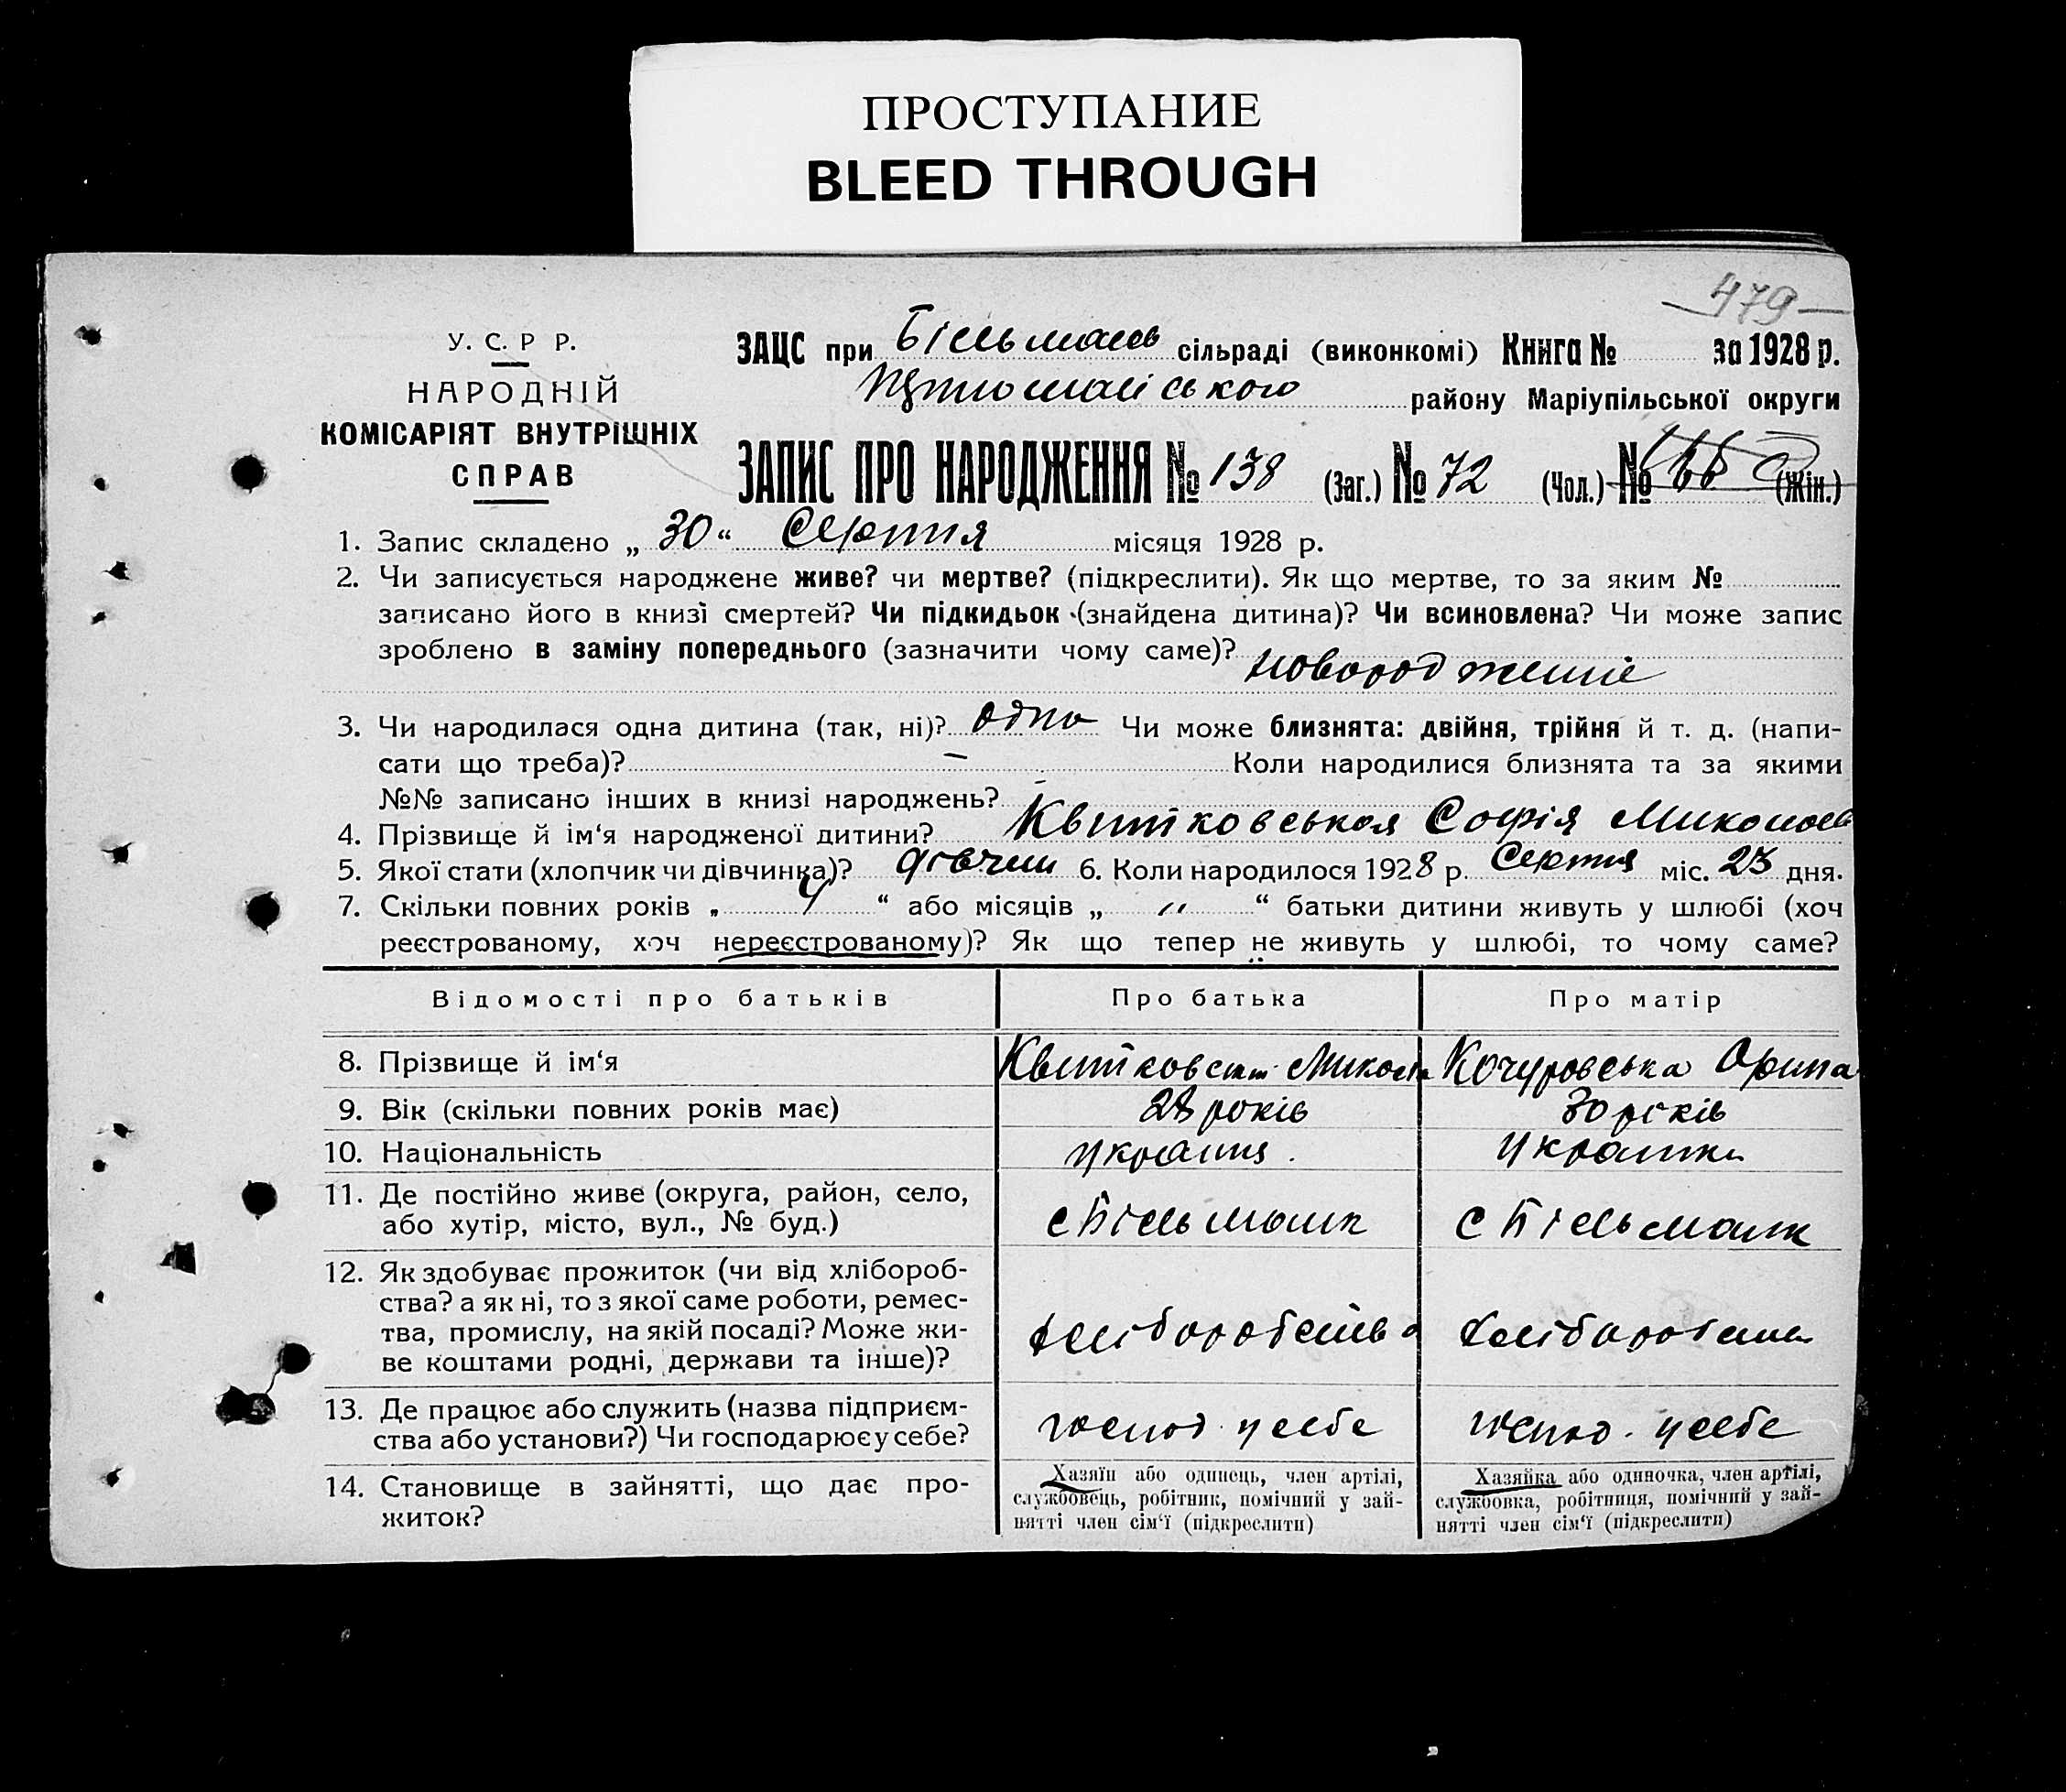 ПРОСТУПАНИЕ
BLEED THROUGH
479
У. С. Р Р.
НАРОДНІЙ
КОМІСАРІЯТ ВНУТРІШНІХ
СПРАВ
ЗАЦС при Більманк сільраді (виконкомі) Книга № за 1928 р.
району Маріупільської округи
ЗАПИС ПРО НАРОДЖЕННЯ № 138 (Заг.) № 72 (Чол.) № (Жін.)
1. Запис складено „ 30 “ Серпня місяця 1928 р.
2. Чи записується народжене живе? чи мертве? (підкреслити). Як що мертве, то за яким №
записано його в книзі смертей? Чи підкидьок (знайдена дитина)? Чи всиновлена? Чи може запис
зроблено в заміну попереднього (зазначити чому саме)?
новородженіе
3. Чи народилася одна дитина (так, ні)? одна Чи може близнята: двійня, трійня й т. д. (напи-
сати що треба)? — Коли народилися близнята та за якими
№№ записано інших в книзі народжень? -
4. Прізвище й ім‘я народженої дитини? Квітковська Софія Миколаєв
5. Якої стати (хлопчик чи дівчинка)? дівчин 6. Коли народилося 1928 р. Серпня міс. 23 дня.
7. Скільки повних років „ 4 “ або місяців „ “ батьки дитини живуть у шлюбі (хоч
реєстрованому, хоч нереєстрованому)? Як що тепер не живуть у шлюбі, то чому саме?
Відомості про батьків Про батька Про матір
8. Прізвище й ім‘я Микола Кочуровська Орина
9. Вік (скільки повних років має) 28 років 30 років
10. Національність українц. українка
11. Де постійно живе (округа, район, село,
або хутір, місто, вул., № буд.) с Більманк с Більманк
12. Як здобуває прожиток (чи від хлібороб-
ства? а як ні, то з якої саме роботи, ремес-
тва, промислу, на якій посаді? Може жи-
ве коштами родні, держави та інше)?
хліборобства
13. Де працює або служить (назва підприєм-
ства або установи?) Чи господарює у себе?
господ. у себе господ. у себе
14. Становище в зайнятті, що дає про-
житок?
Хазяїн або одинець, член артілі,
службовець, робітник, помічний у зай-
нятті член сім‘ї (підкреслити)
Хазяйка або одиночка, член артілі,
службовка, робітниця, помічний у зай-
нятті член сім‘ї (підкреслити)